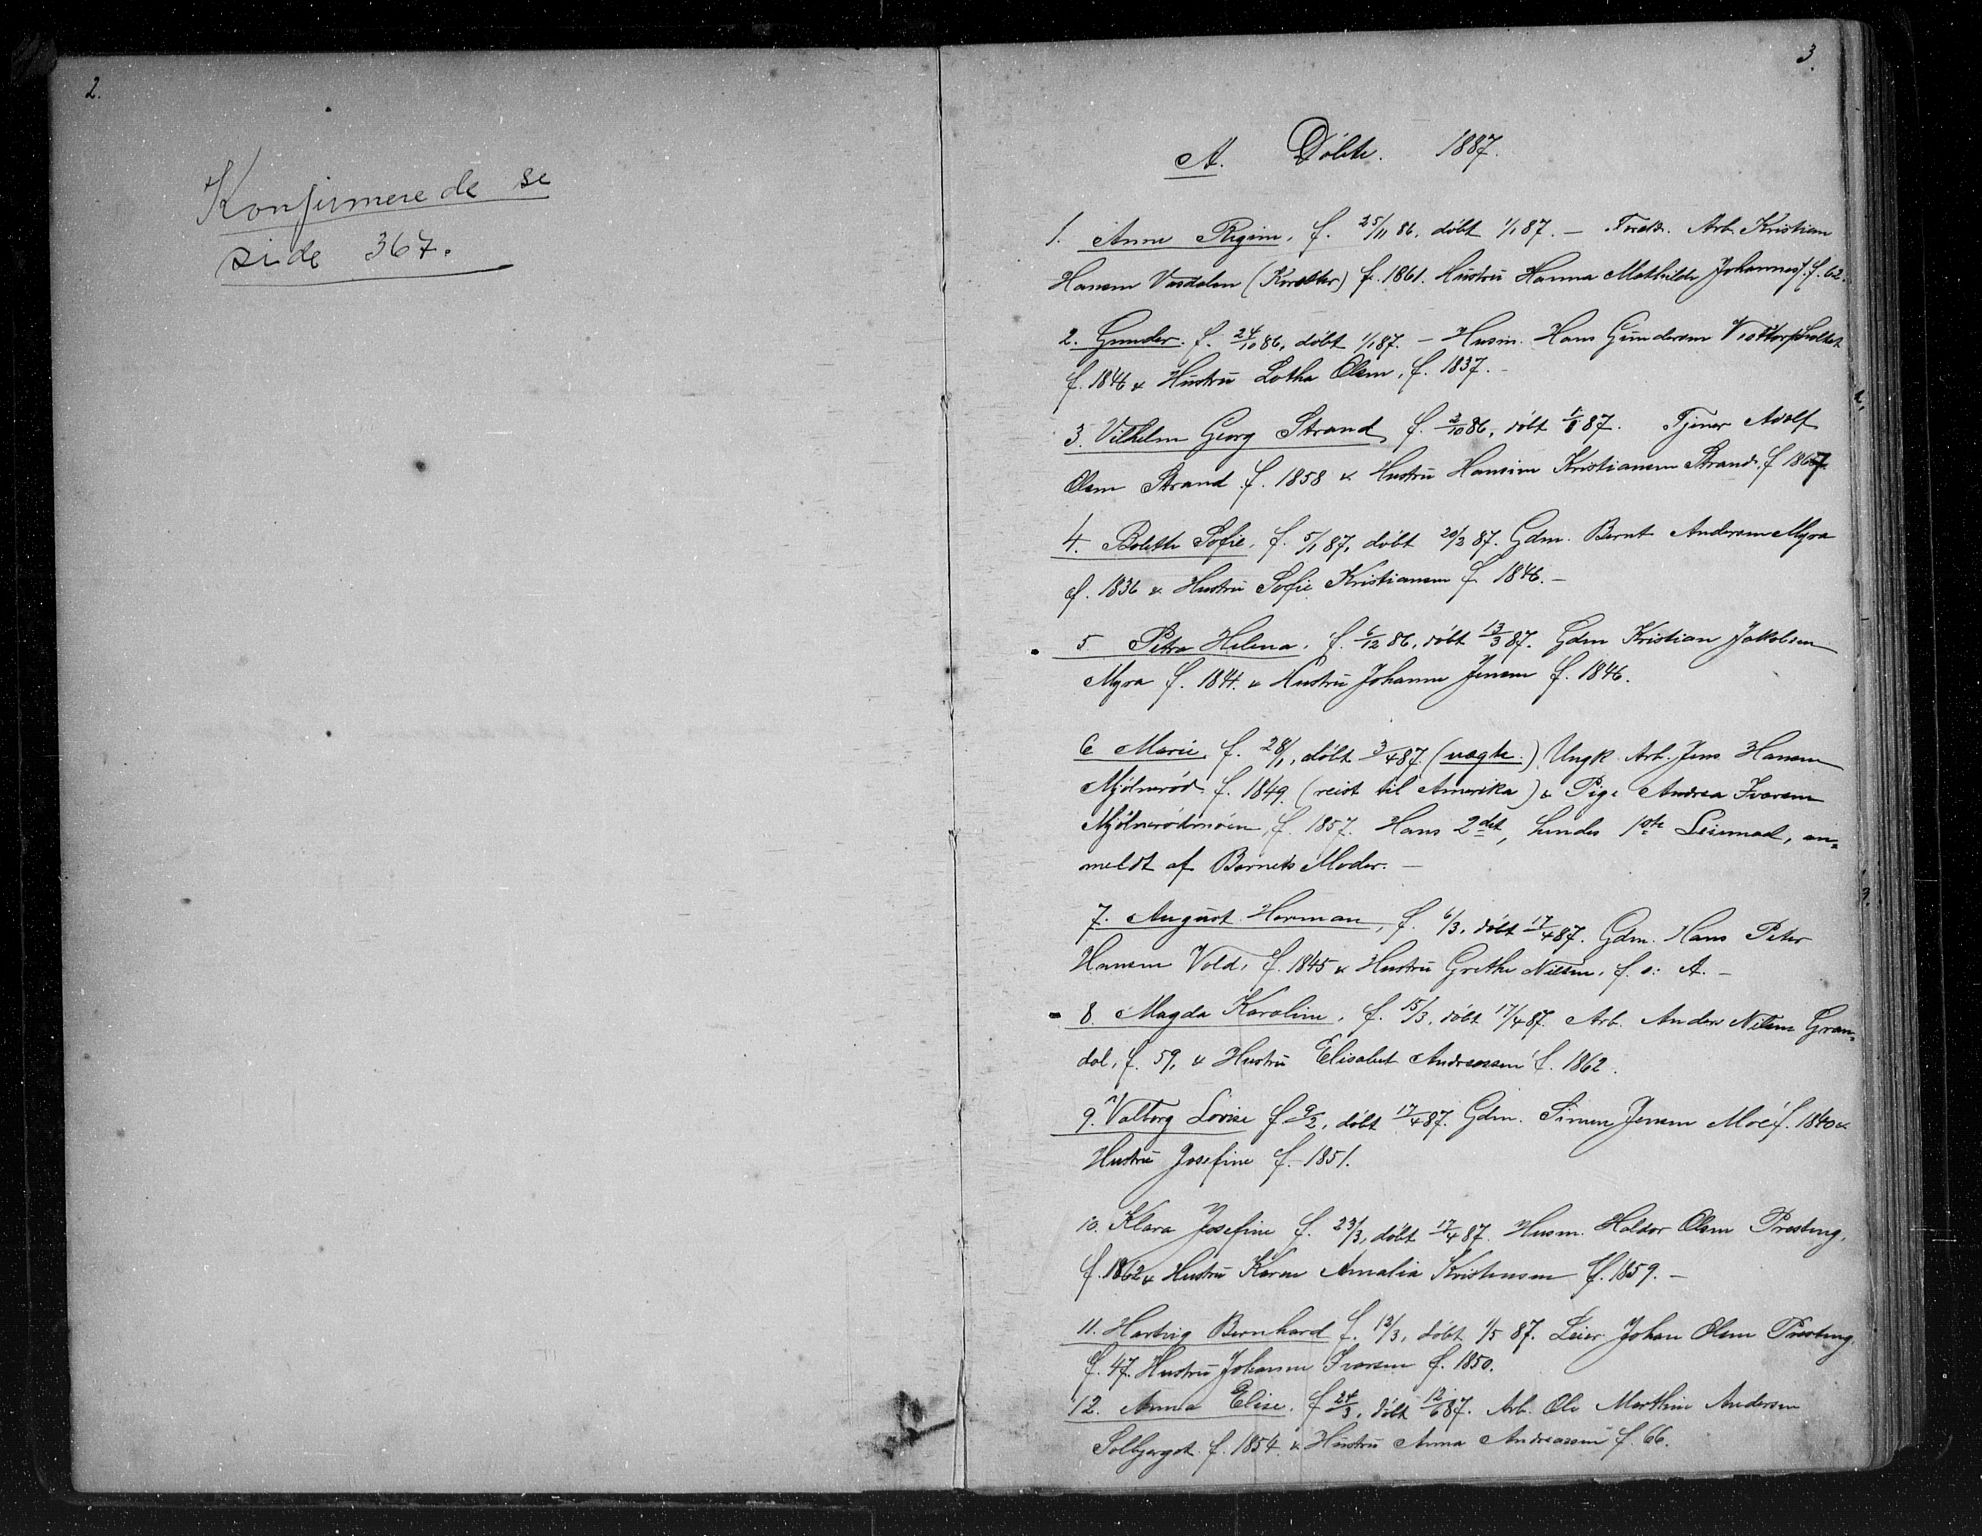 2.
Konfirmerede se
side 367.
3.
A. Döbte. 1887.
1. Anne Regine, f. 25/11 86, döbt 1/1 87. — Foreldr. Arb. Kristian
Hansen Vasdalen f. 1861. Hustru Hanna Mathilde Johannesd. f. 62.
2. Gunder. f. 24/10 86, döbt 1/1 87. — Husm. Hans Gundersen
f. 1846 & Hustru Lothe Olsen, f. 1837. —
3. Vilhelm Georg Strand, f. 2/10 86, döbt 87. Tjener Adolf
Olsen Strand f. 1858 & Hustru Hansine Kristiansen Strand. f 1867
4. Bolette Sofie, f. 5/1 87, döbt 20/2 87. Gdm. Bernt Andersen Myra
f. 1836 & Hustru Sofie Kristiansen f. 1846. —
5 Petra Helena, f. 6/12 86, döbt 13/3 87. Gdm Kristian Jakobsen
Myra f. 1844. & Hustru Johanne Jensen f. 1846.
6 Marie, f. 28/1, döbt 3/4 87 (uægte.) Ungk. Arb. Jens Hansen
Mjölneröd. f. 1849. (reist til Amerika) & Pige Andrea Ivarsen
Mjölnerödmoen, f. 1857. Hans 2det, hendes 1ste Leiermaal, an=
meldt af Barnets Moder. —
7. August Herman, f. 6/3, döbt 17/4 87. Gdm. Hans Peter
Hansen Vold, f. 1845 & Hustru Grethe Nilsen, f. o: A. —
8. Magda Karoline, f. 15/3, döbt 17/4 87. Arb. Anders Nilsen Gran=
dal, f. 59, & Hustru Elisabet Andreassen f. 1862.
9. Valborg Lovise f 9/2, döbt 17/4 87. Gdm. Simen Jensen Moe f. 1840 &
Hustru Josefine f. 1851.
10. Klara Josefine f. 23/3, döbt 17/4 87. Husm. Haldor Olsen Presteng,
f. 1862 & Hustru Karen Amalia Kristensen f. 1859. —
11. Hartvig Bernhard f. 13/3, döbt 1/5 87. Leier Johan Olsen Presteng,
f. 47. Hustru Johanne Ivarsen f. 1850.
12. Anna Elise, f 24/3, döbt 12/6 87. Arb. Ole Marthin Andersen
Solbjerget f. 1854 & Hustru Anna Andreassen f. 66.